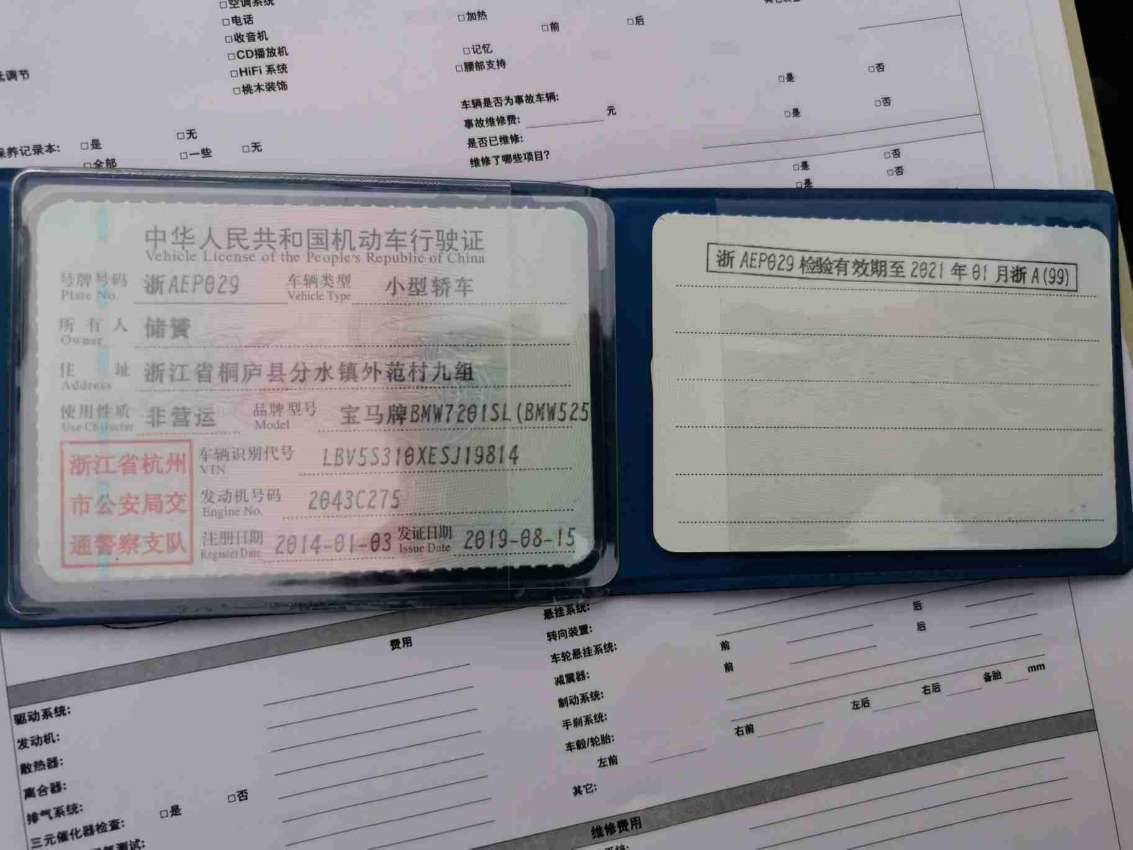 □空调系统
□电话
□收音机
□CD播放机
□HiFi 系统
□桃木装饰
□加热
□前 □后
□记忆
□腰部支持
调节
车辆是否为事故车辆: □是 □否
事故维修费: 元
是否已维修: □是 □否
维修了哪些项目?
□是 □否
□是 □否
保养记录本: □是 □无
□全部 □一些 □无
中华人民共和国机动车行驶证
Vehicle License of the People's Republic of China
号牌号码 浙AEP029 车辆类型 小型轿车
Plate No. Vehicle Type
所有人 储赟
Owner
住址 浙江省桐庐县分水镇外范村九组
Address
使用性质 非营运 品牌型号 宝马牌BMW7201SL(BMW525
Use Character Model
浙江省杭州
市公安局交
通警察支队
车辆识别代号 LBV5S310XESJ19814
VIN
发动机号码 2043C275
Engine No.
注册日期 2014-01-03 发证日期 2019-08-15
Register Date Issue Date
浙AEP029 检验有效期至 2021 年 01 月浙A(99)
费用
驱动系统:
发动机:
散热器:
离合器:
排气系统:
三元催化器检查: □是 □否
悬挂系统: 后
转向装置: 后
车轮悬挂系统: 前
减震器: 前
制动系统:
手刹系统:
车毂/轮胎:
左前 右前 左后 右后 备胎 mm
其它:
维修费用